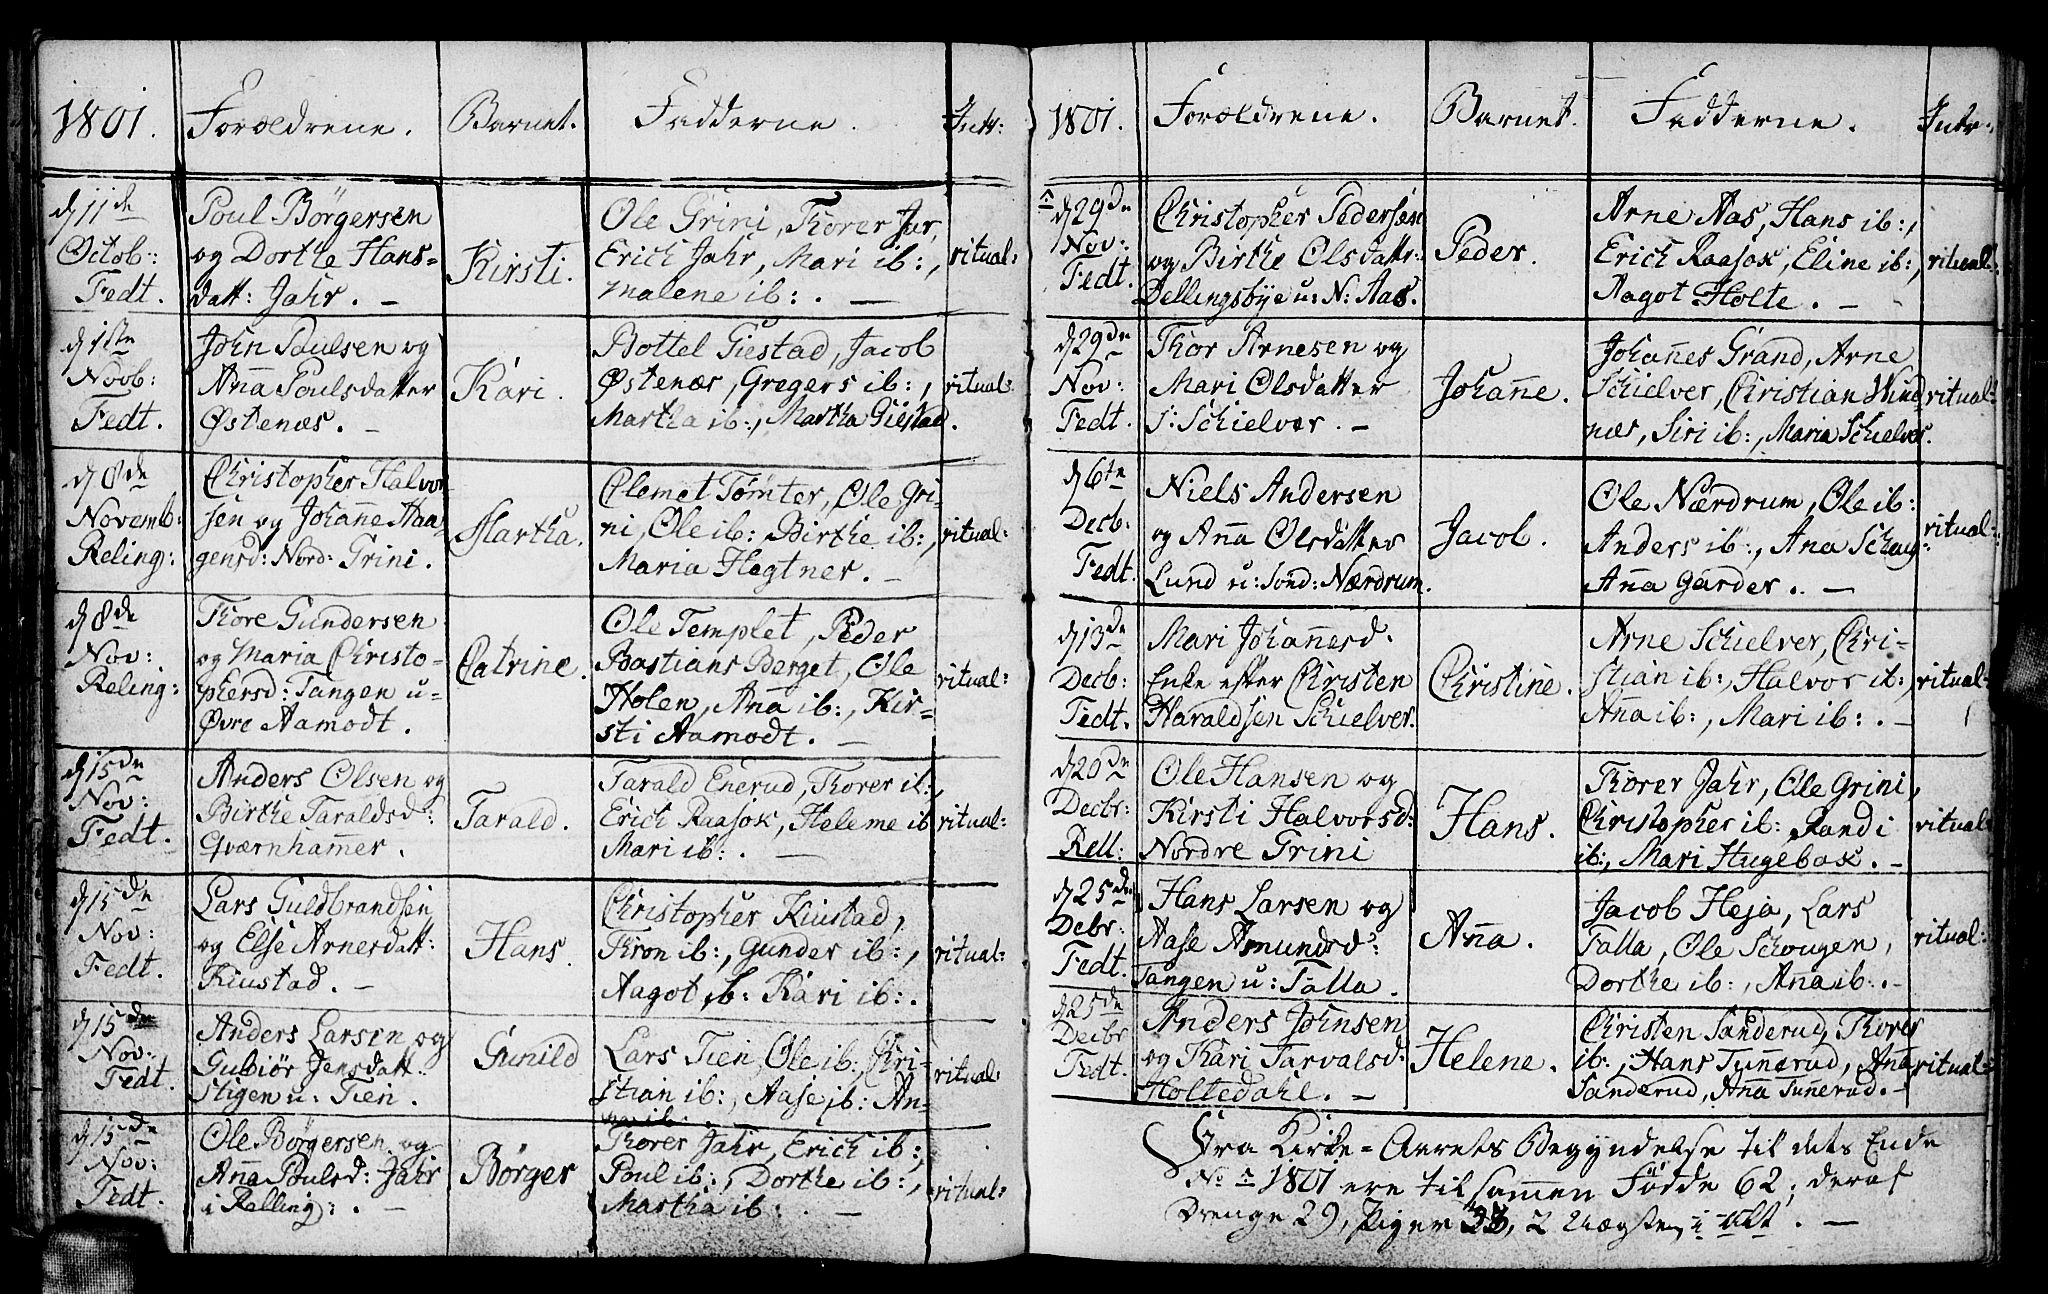 1801.
Forældrene.
Barnet.
Fadderne.
Intr:
d 11de
Octob:
Fedt.
Poul Børgersen
og Dorthe Hans-
datt: Jahr. —
Kirsti.
Ole Grini, Thorer Jar,
Erich Jahr, Mari ib:,
Malene ib: . —
ritual:
d 1ste
Novb:
Fedt.
John Paulsen og
Aña Poulsdatter
Østenæs. —
Kari.
Bottel Giestad, Jacob
Østenæs, Gregers ib:,
Martha ib:, Martha Giestad.
ritual:
d 8de
Novemb:
Reling:
Christopher Halvor
sen og Johañe Haa
gensd: Nord: Grini.
Martha.
Clemet Tømter, Ole Gri-
ni, Ole ib: Birthe ib:,
Maria Hegtner. —
ritual:
d 8de
Nov:
Reling:
Thore Gundersen
og Maria Christo-
phersd: Tangen u-
Øvre Aamodt.
Catrine.
Ole Templet, Peder
Bastians Berget, Ole
Holen, Aña ib:, Kir-
sti Aamodt. —
ritual:
d 15de
Nov:
Fedt.
Anders Olsen og
Birthe Taraldsd:
Qværnham̃er.
Tarald.
Tarald Enerud, Thorer ib:,
Erich Raasok, Heleme ib
Mari ib: . —
ritual:
d 15de
Nov:
Fedt.
Lars Guldbrandsen
og Else Arnesdatt:
Kiustad. —
Hans.
Christopher Kiustad,
Thron ib:, Gunder ib:,
Aagot ib: Kari ib: .
ritual:
d 15de
Nov:
Fedt.
Anders Larsen og
Gubiør Jensdatt.
Stigen u: Tien.
Gunild
Lars Tien, Ole ib:, Chri-
stian ib:, Aase ib: An-
na ib:
ritual:
d 15de
Nov:
Fedt.
Ole Børgersen og
Aña Poulsd: Jahr
i Relling: . —
Børger
Thorer Jahr, Erich ib:,
Poul ib:, Dorthe ib:,
Martha ib: . —
ritual:
1801.
Forældrene.
Barnet.
Fadderne.
Intr:
d 29de
Nov:
Fedt.
Christopher Pedersen
og Birthe Olsdattr:
Dellingsbye u: N: Aas.
Peder.
Arne Aas, Hans ib:,
Erich Raasok, Eline ib:,
Aagot Holte. —
ritual:
d 29de
Nov:
Fedt.
Thor Arnesen og
Mari Olsdatter
S: Schielver. —
Johañe.
Johañes Grand, Arne
Schielver, Christian Wind
næs, Siri ib:, Maria Schielver.
ritual:
d 6te
Decb:
Fedt.
Niels Andersen
og Aña Olsdatter
Lund u: Sønd: Nærdrum.
Jacob.
Ole Nærdrum, Ole ib:
Anders ib:, Ana Schau-
Aña Garder. . —
ritual:
d 13de
Decb:
Fedt.
Mari Johañesd.
Enke efter Christen
Haraldsen Schielver.
Christine.
Arne Schielver, Chri-
stian ib:, Halvor ib:,
Aña ib:, Mari ib: . —
ritual:
d 20de
Decbr:
Rell:
Ole Hansen og
Kirsti Halvorsd:
Nordre Grini
Hans.
Thorer Jahr, Ole Grini,
Christopher ib: Randi
ib:, Mari Hugebak. —
ritual:
d 25de
Debr:
Fedt.
Hans Larsen og
Aase Amundsd:
Tangen u: Falla.
Aña.
Jacob Heja, Lars
Falla, Ole Schougen,
Dorthe ib:, Aña ib: . —
ritual:
d 25de
Decbr
Fedt:
Anders Johnsen
og Kari Tarvalsd:
Holtedahl. —
Helene.
Christen Sanderud, Thorer
ib:, Hans Tuñerud, Aña
Sanderud, Aña Tunerud. —
ritual:
Fra Kirke-Aarets Begyndelse til dets Ende
No: 1801 ere tilsammen Fødde 62; deraf
Drenge 29, Piger 33, 2 Uægte i alt. —